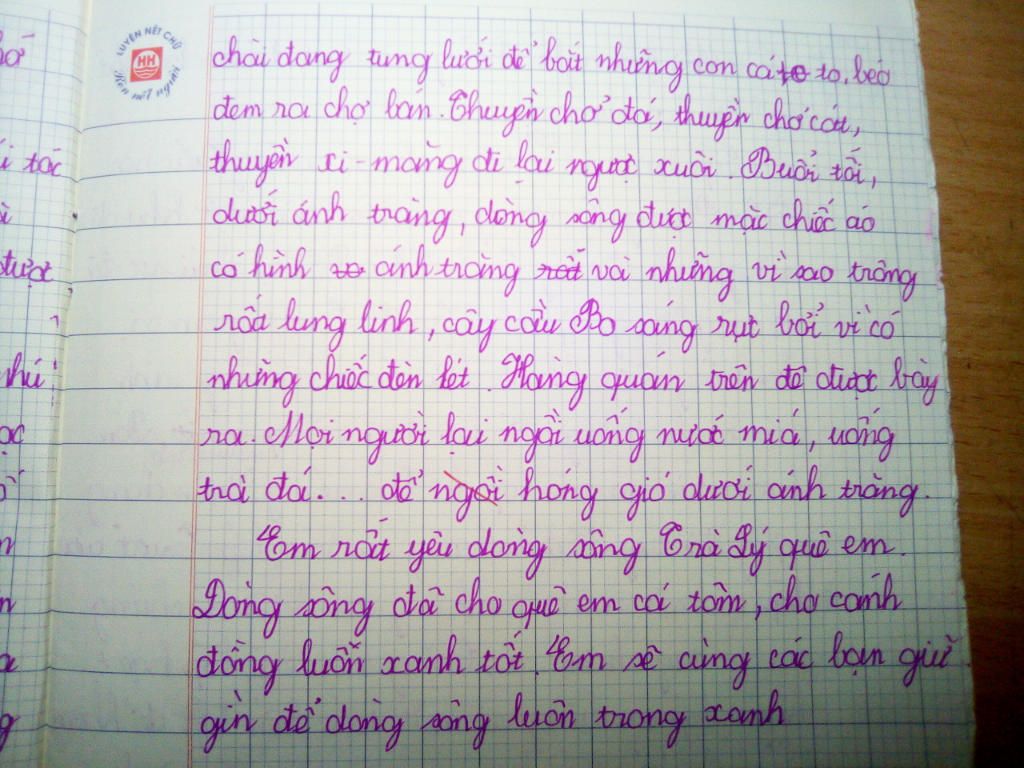 LUYỆN NÉT CHỮ
HH
Rèn nết người
tác
được
chài đang tung lưới để bắt những con cá to, béo
đem ra chợ bán. Thuyền chở đá, thuyền chở cát,
thuyền xi-măng đi lại ngược xuôi. Buổi tối,
dưới ánh trăng, dòng sông được mặc chiếc áo
có hình ánh trăng và những vì sao trông
rất lung linh, cây cầu Bo sáng rực bởi vì có
những chiếc đèn lét. Hàng quán trên đê được bày
ra. Mọi người lại ngồi uống nước mía, uống
trà đá... để ngồi hóng gió dưới ánh trăng.
Em rất yêu dòng sông Trà Lý quê em.
Dòng sông đã cho quê em cá tôm, cho cánh
đồng luôn xanh tốt. Em sẽ cùng các bạn giữ
gìn để dòng sông luôn trong xanh